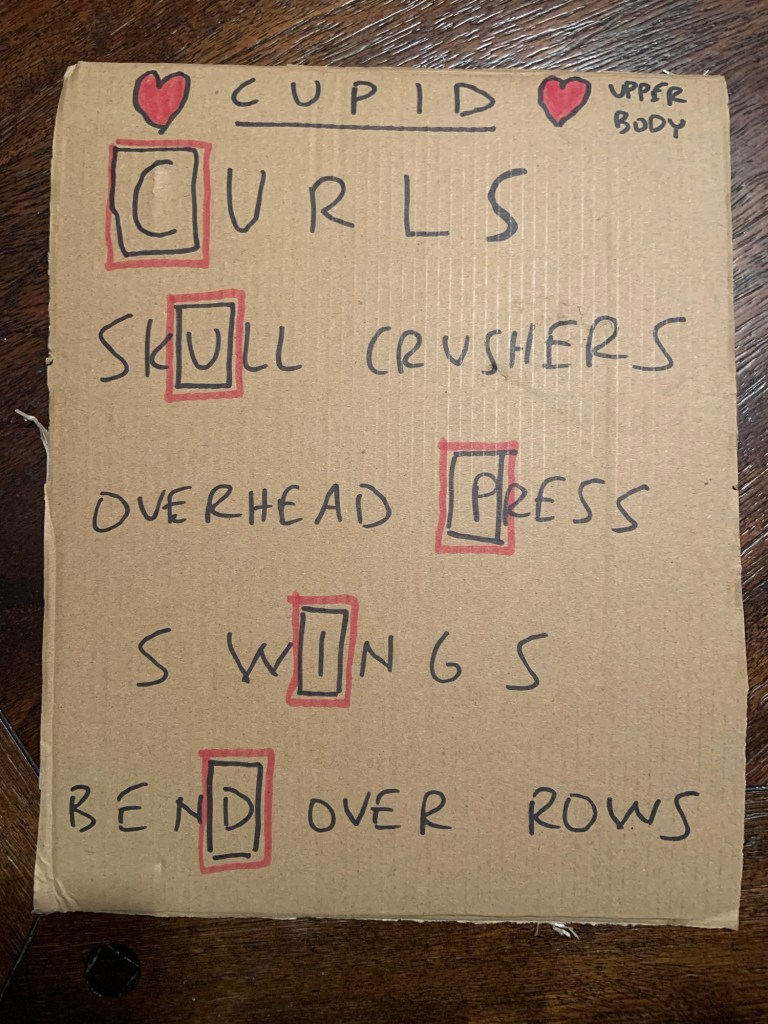 CUPID
UPPER
BODY
CURLS
SKULL CRUSHERS
OVERHEAD PRESS
SWINGS
BEND OVER ROWS